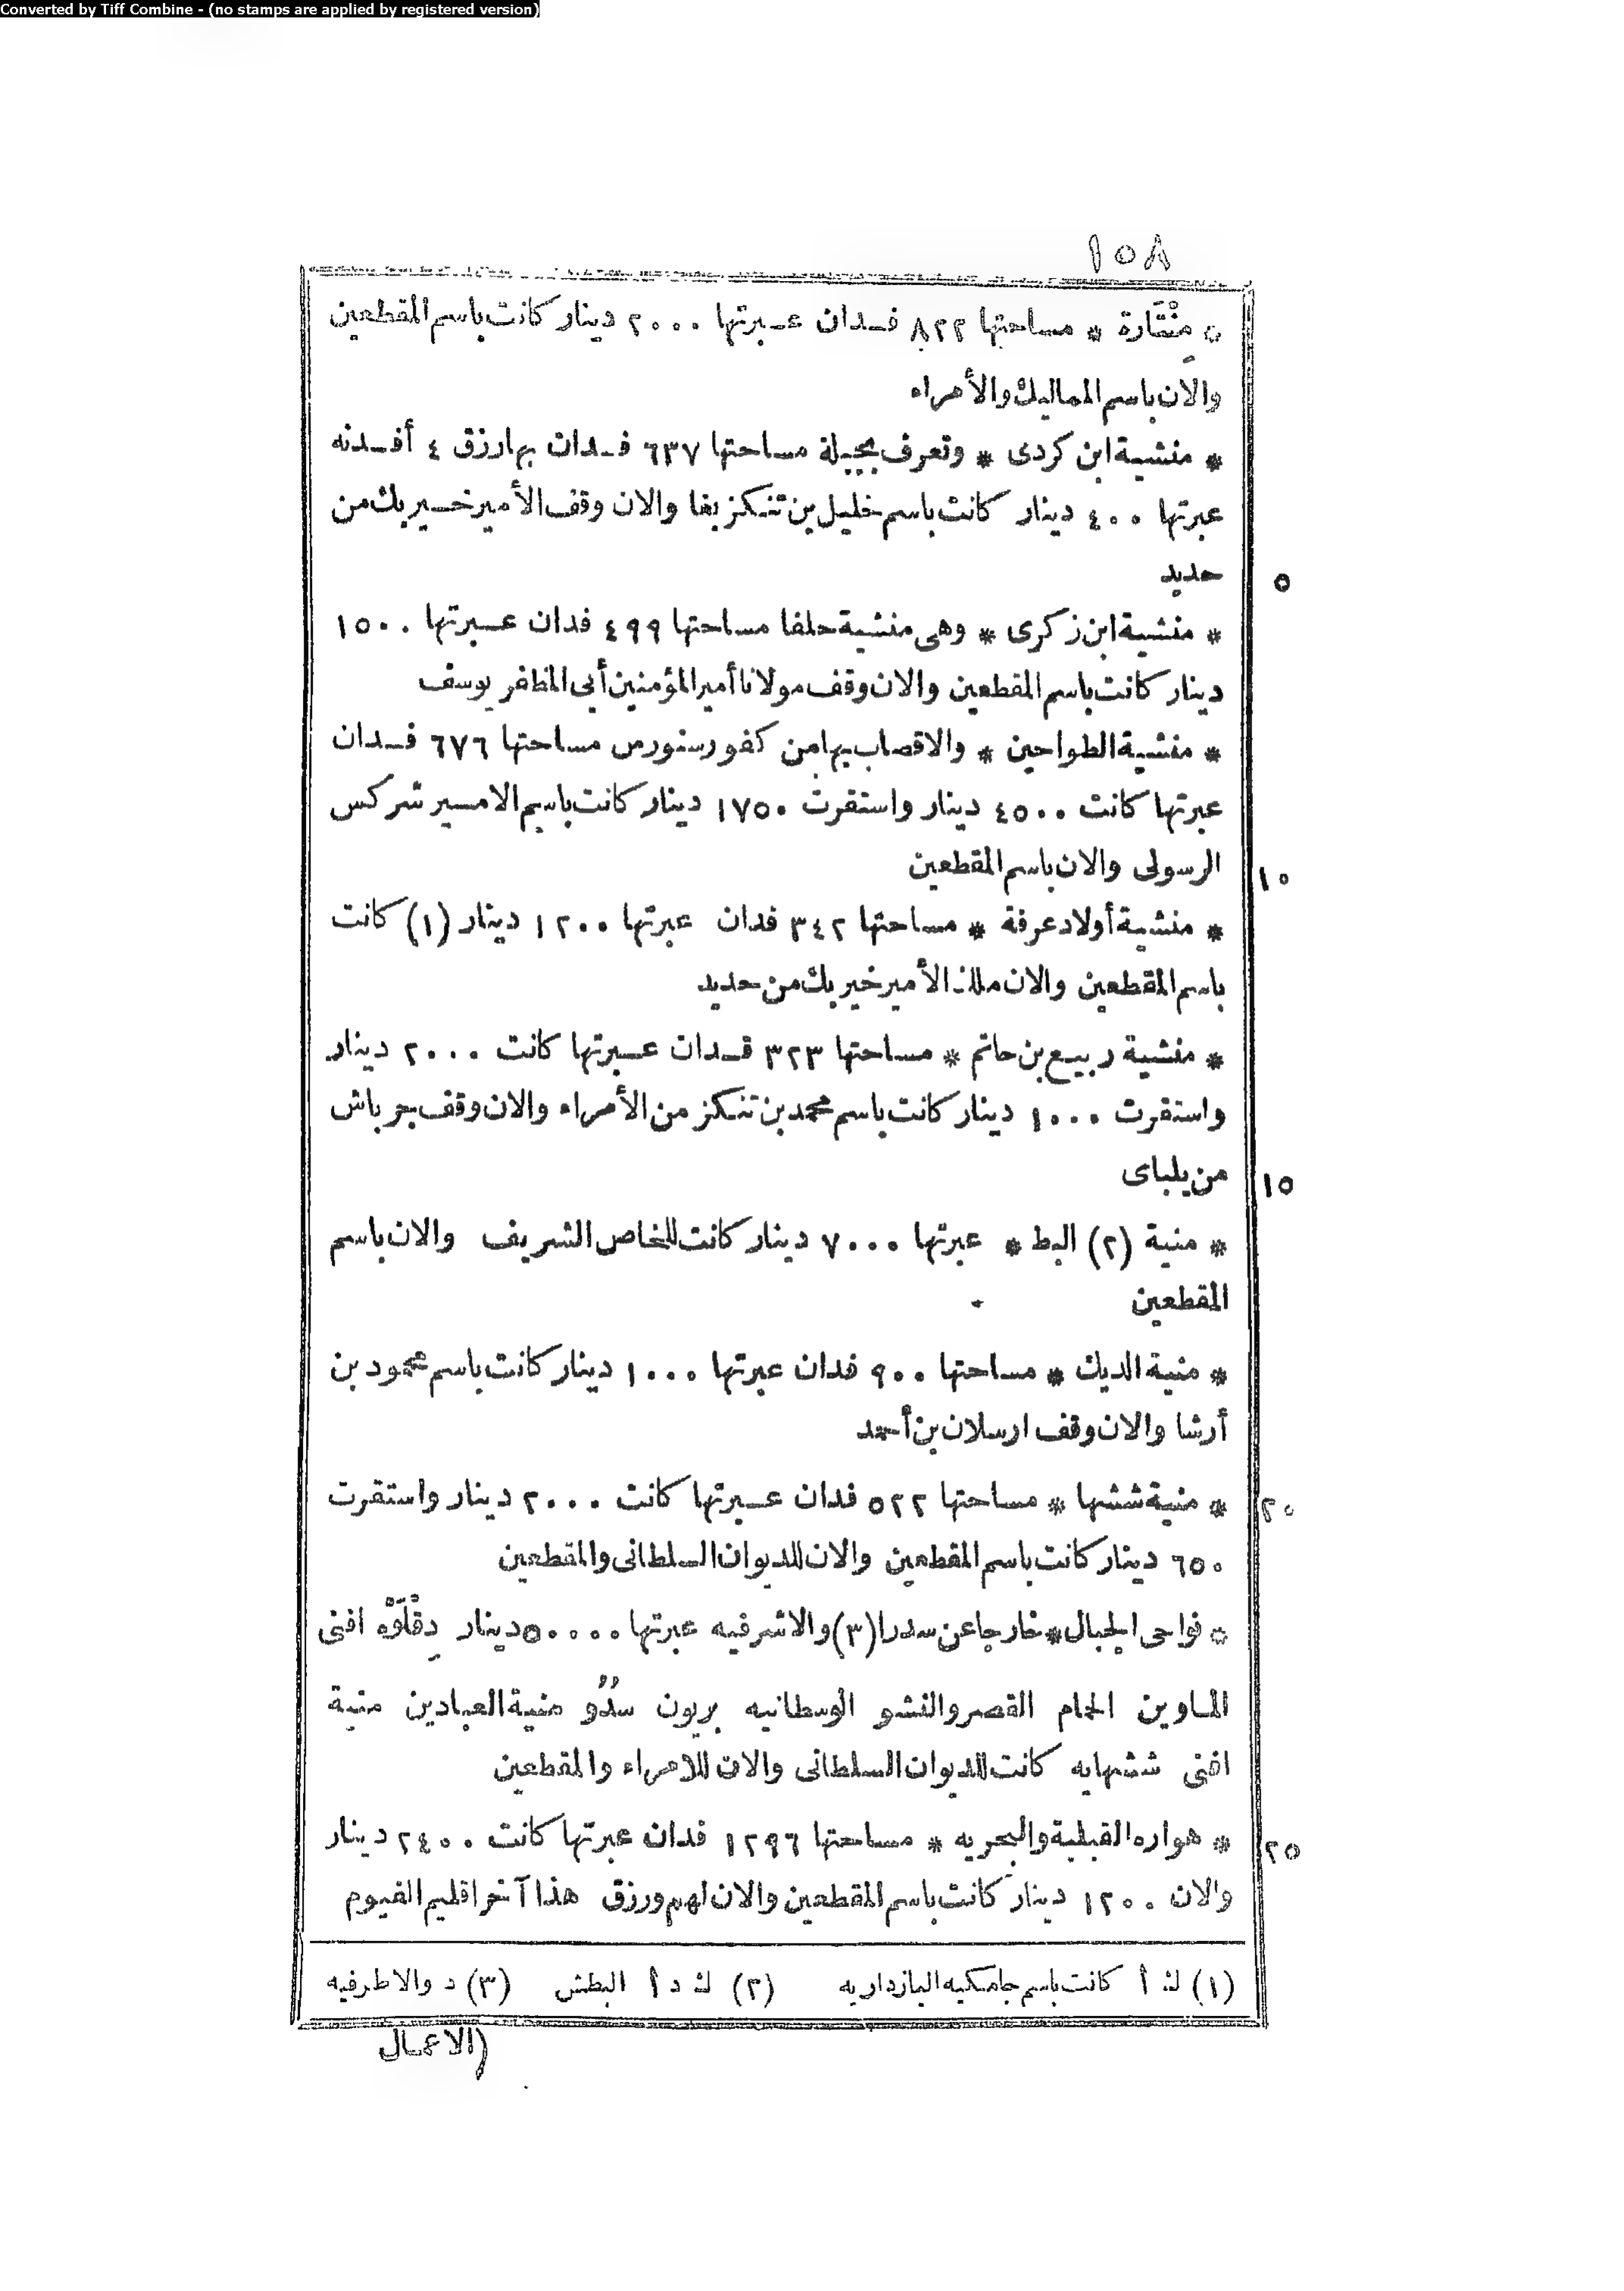 Converted by Tiff Combine - (no stamps are applied by registered version)
١٥٨
* مِنْقَارة * مساحتها ٨٢٢ فدان عبرتها ٢٠٠٠ دينار كانت باسم المقطعين
والان باسم المماليك والأمراء
* منشية ابن كردى * وتعرف بجبيلة مساحتها ٦٣٧ فدان بها رزق ٤ أفدنه
عبرتها ٤٠٠ دينار كانت باسم خليل بن تنكز بغا والان وقف الأمير خير بك من
حديد
٥
* منشية ابن زكرى * وهى منشية حلفا مساحتها ٤٩٩ فدان عبرتها ١٥٠٠
دينار كانت باسم المقطعين والان وقف مولانا أمير المؤمنين أبى المظفر يوسف
* منشية الطواحين * والاقصاب بها من كفور سنورس مساحتها ٦٧٦ فدان
عبرتها كانت ٤٥٠٠ دينار واستقرت ١٧٥٠ دينار كانت باسم الامير شركس
الرسولى والان باسم المقطعين
١٠
* منشية أولاد عرفة * مساحتها ٣٤٢ فدان عبرتها ١٢٠٠ دينار (١) كانت
باسم المقطعين والان ملك الأمير خير بك من حديد
* منشية ربيع بن حاتم * مساحتها ٣٢٣ فدان عبرتها كانت ٢٠٠٠ دينار
واستقرت ١٠٠٠ دينار كانت باسم محمد بن تنكز من الأمراء والان وقف جرباش
من يلباى
١٥
* منية (٢) البط * عبرتها ٧٠٠٠ دينار كانت للخاص الشريف والان باسم
المقطعين
* منية الديك * مساحتها ٩٠٠ فدان عبرتها ١٠٠٠ دينار كانت باسم محمود بن
أرشا والان وقف ارسلان بن أحمد
* منية ششها * مساحتها ٥٢٢ فدان عبرتها كانت ٢٠٠٠ دينار واستقرت
٢٠
٦٥٠ دينار كانت باسم المقطعين والان للديوان السلطانى والمقطعين
* نواحى الجبال * خارجا عن سدرا (٣) والاشرفيه عبرتها ٥٠٠٠٠ دينار دِقْلَوْه افنى
الماوين الحام القصر والنشو الوسطانيه بربون سدُو منية العبادين منية
افنى ششهايه كانت للديوان السلطانى والان للامراء والمقطعين
* هواره القبلية والبحريه * مساحتها ١٢٩٦ فدان عبرتها كانت ٢٤٠٠ دينار
٢٥
والان ١٢٠٠ دينار كانت باسم المقطعين والان لهم ورزق هذا آخر اقليم الفيوم
(١) ك أ كانت باسم جامكيه البازداريه (٢) ك د أ البطش (٣) د والاطرفيه
(الاعمال